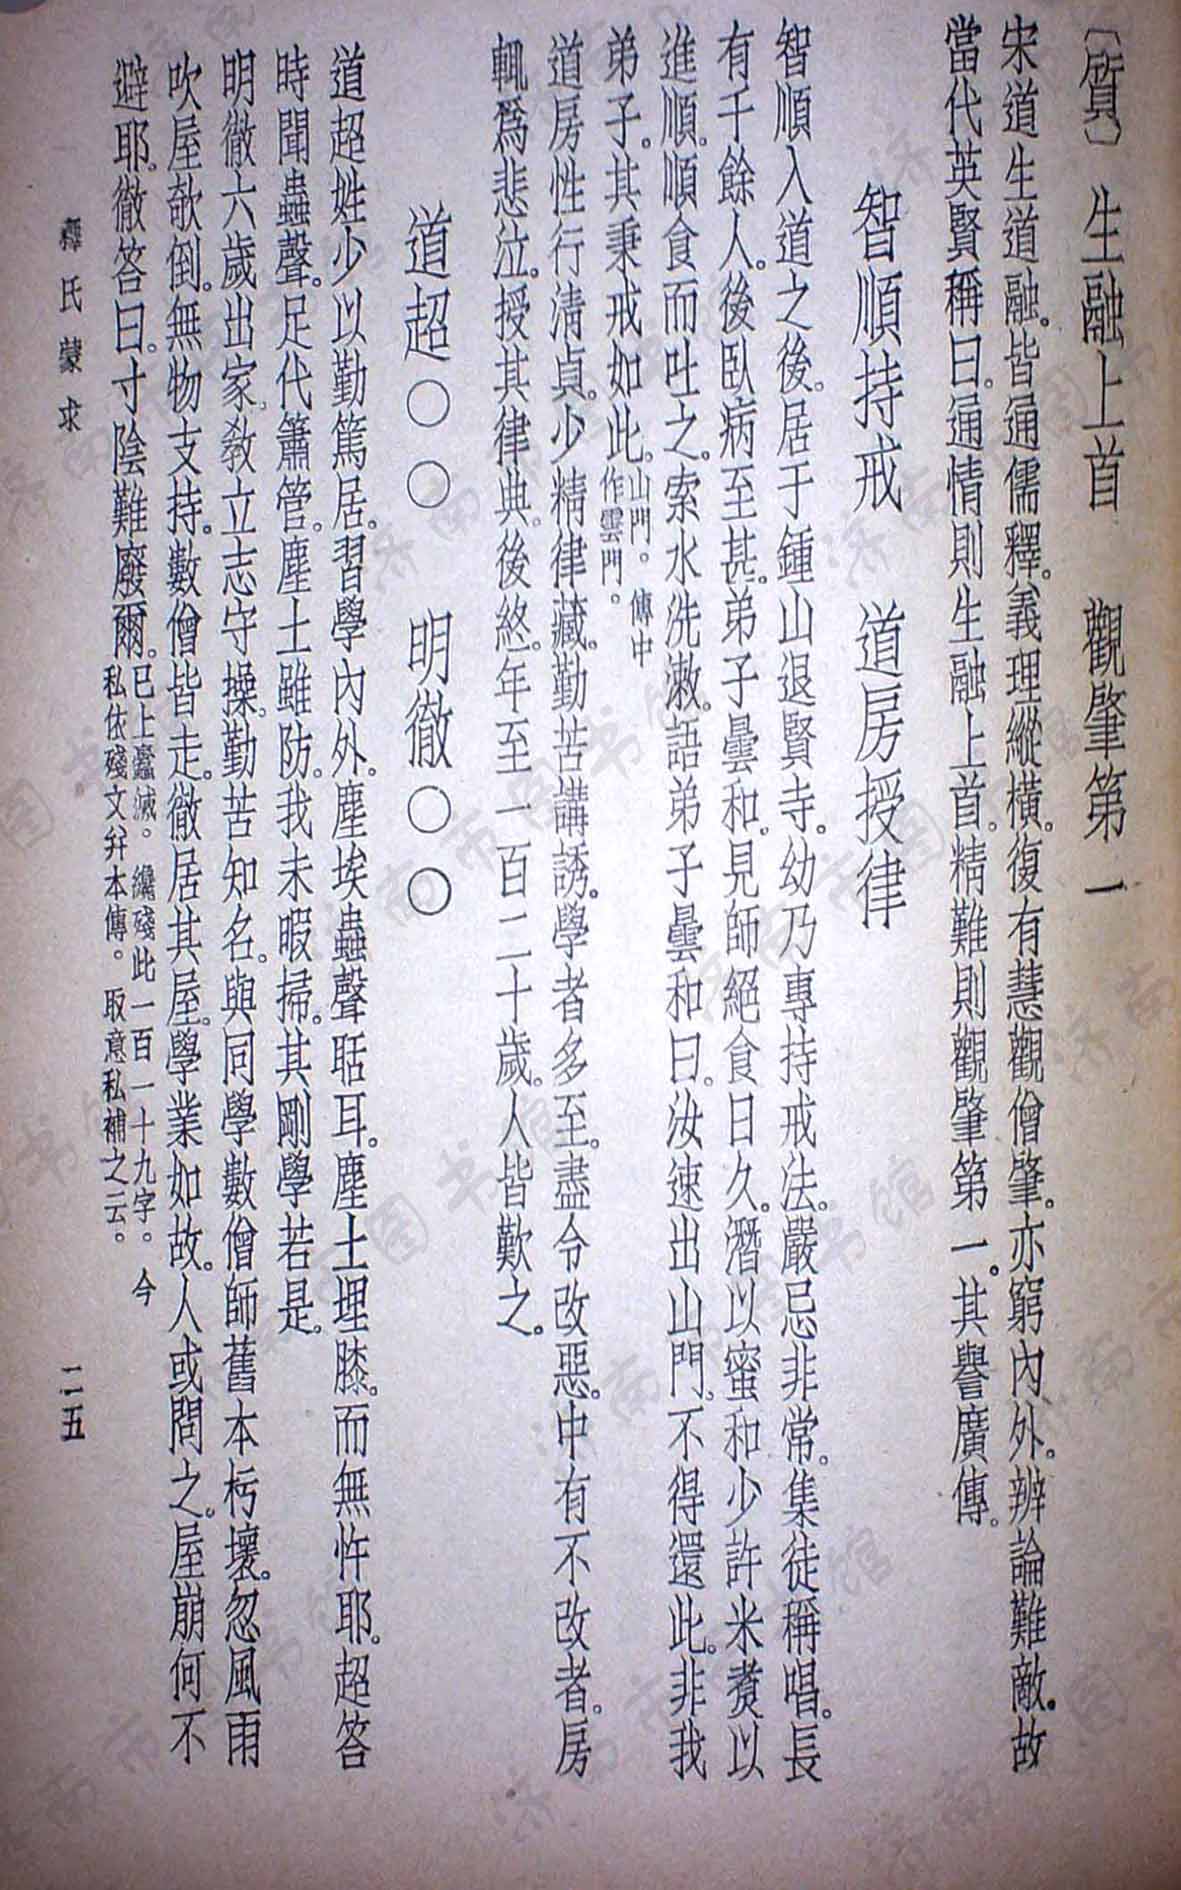 〔質〕 生融上首 觀肇第一
宋道生道融。皆通儒釋。義理縱橫。復有慧觀僧肇。亦窮內外。辨論難敵。故
當代英賢稱曰。通情則生融上首。精難則觀肇第一。其譽廣傳。
智順持戒 道房授律
智順入道之後。居于鍾山退賢寺。幼乃專持戒法。嚴忌非常。集徒稱唱。長
有千餘人。後臥病至甚。弟子曇和。見師絕食日久。潛以蜜和少許米煑以
進順。順食而吐之。索水洗漱。語弟子曇和曰。汝速出山門。不得還此。非我
弟子。其秉戒如此。山門。傳中作雲門。
道房性行清貞。少精律藏。勤苦講誘。學者多至。盡令改惡。中有不改者。房
輒爲悲泣。授其律典。後終。年至一百二十歲。人皆歎之。
道超〇〇 明徹〇〇
道超姓少以勤篤居。習學內外。塵埃蟲聲聒耳。塵土埋膝。而無忤耶。超答
時聞蟲聲。足代簫管。塵土雖防。我未暇掃。其剛學若是。
明徹六歲出家。教立志守操。勤苦知名。與同學數僧師舊本杇壞。忽風雨
吹屋欹倒。無物支持。數僧皆走。徹居其屋。學業如故。人或問之。屋崩何不
避耶。徹答曰。寸陰難廢爾。已上蠹滅。纔殘此一百一十九字。今私依殘文幷本傳。取意私補之云。
釋氏蒙求
二一五